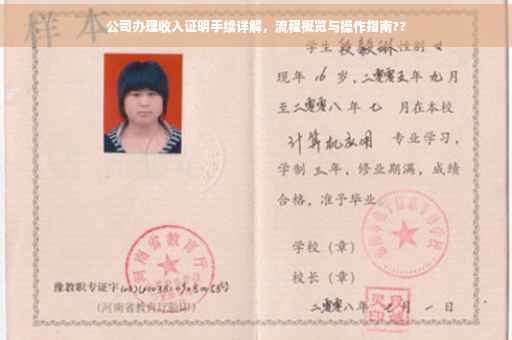 公司办理收入证明手续详解，流程概览与操作指南??
样本
学生段毅琳性别女
现年16岁，二零零五年九月
至二零零八年七月在本校
计算机应用专业学习，
学制三年，修业期满，成绩
合格，准予毕业
学校（章）
校长（章）
二零零八年七月一日
河南省教育厅
豫教职专证字
（河南省教育厅验印）